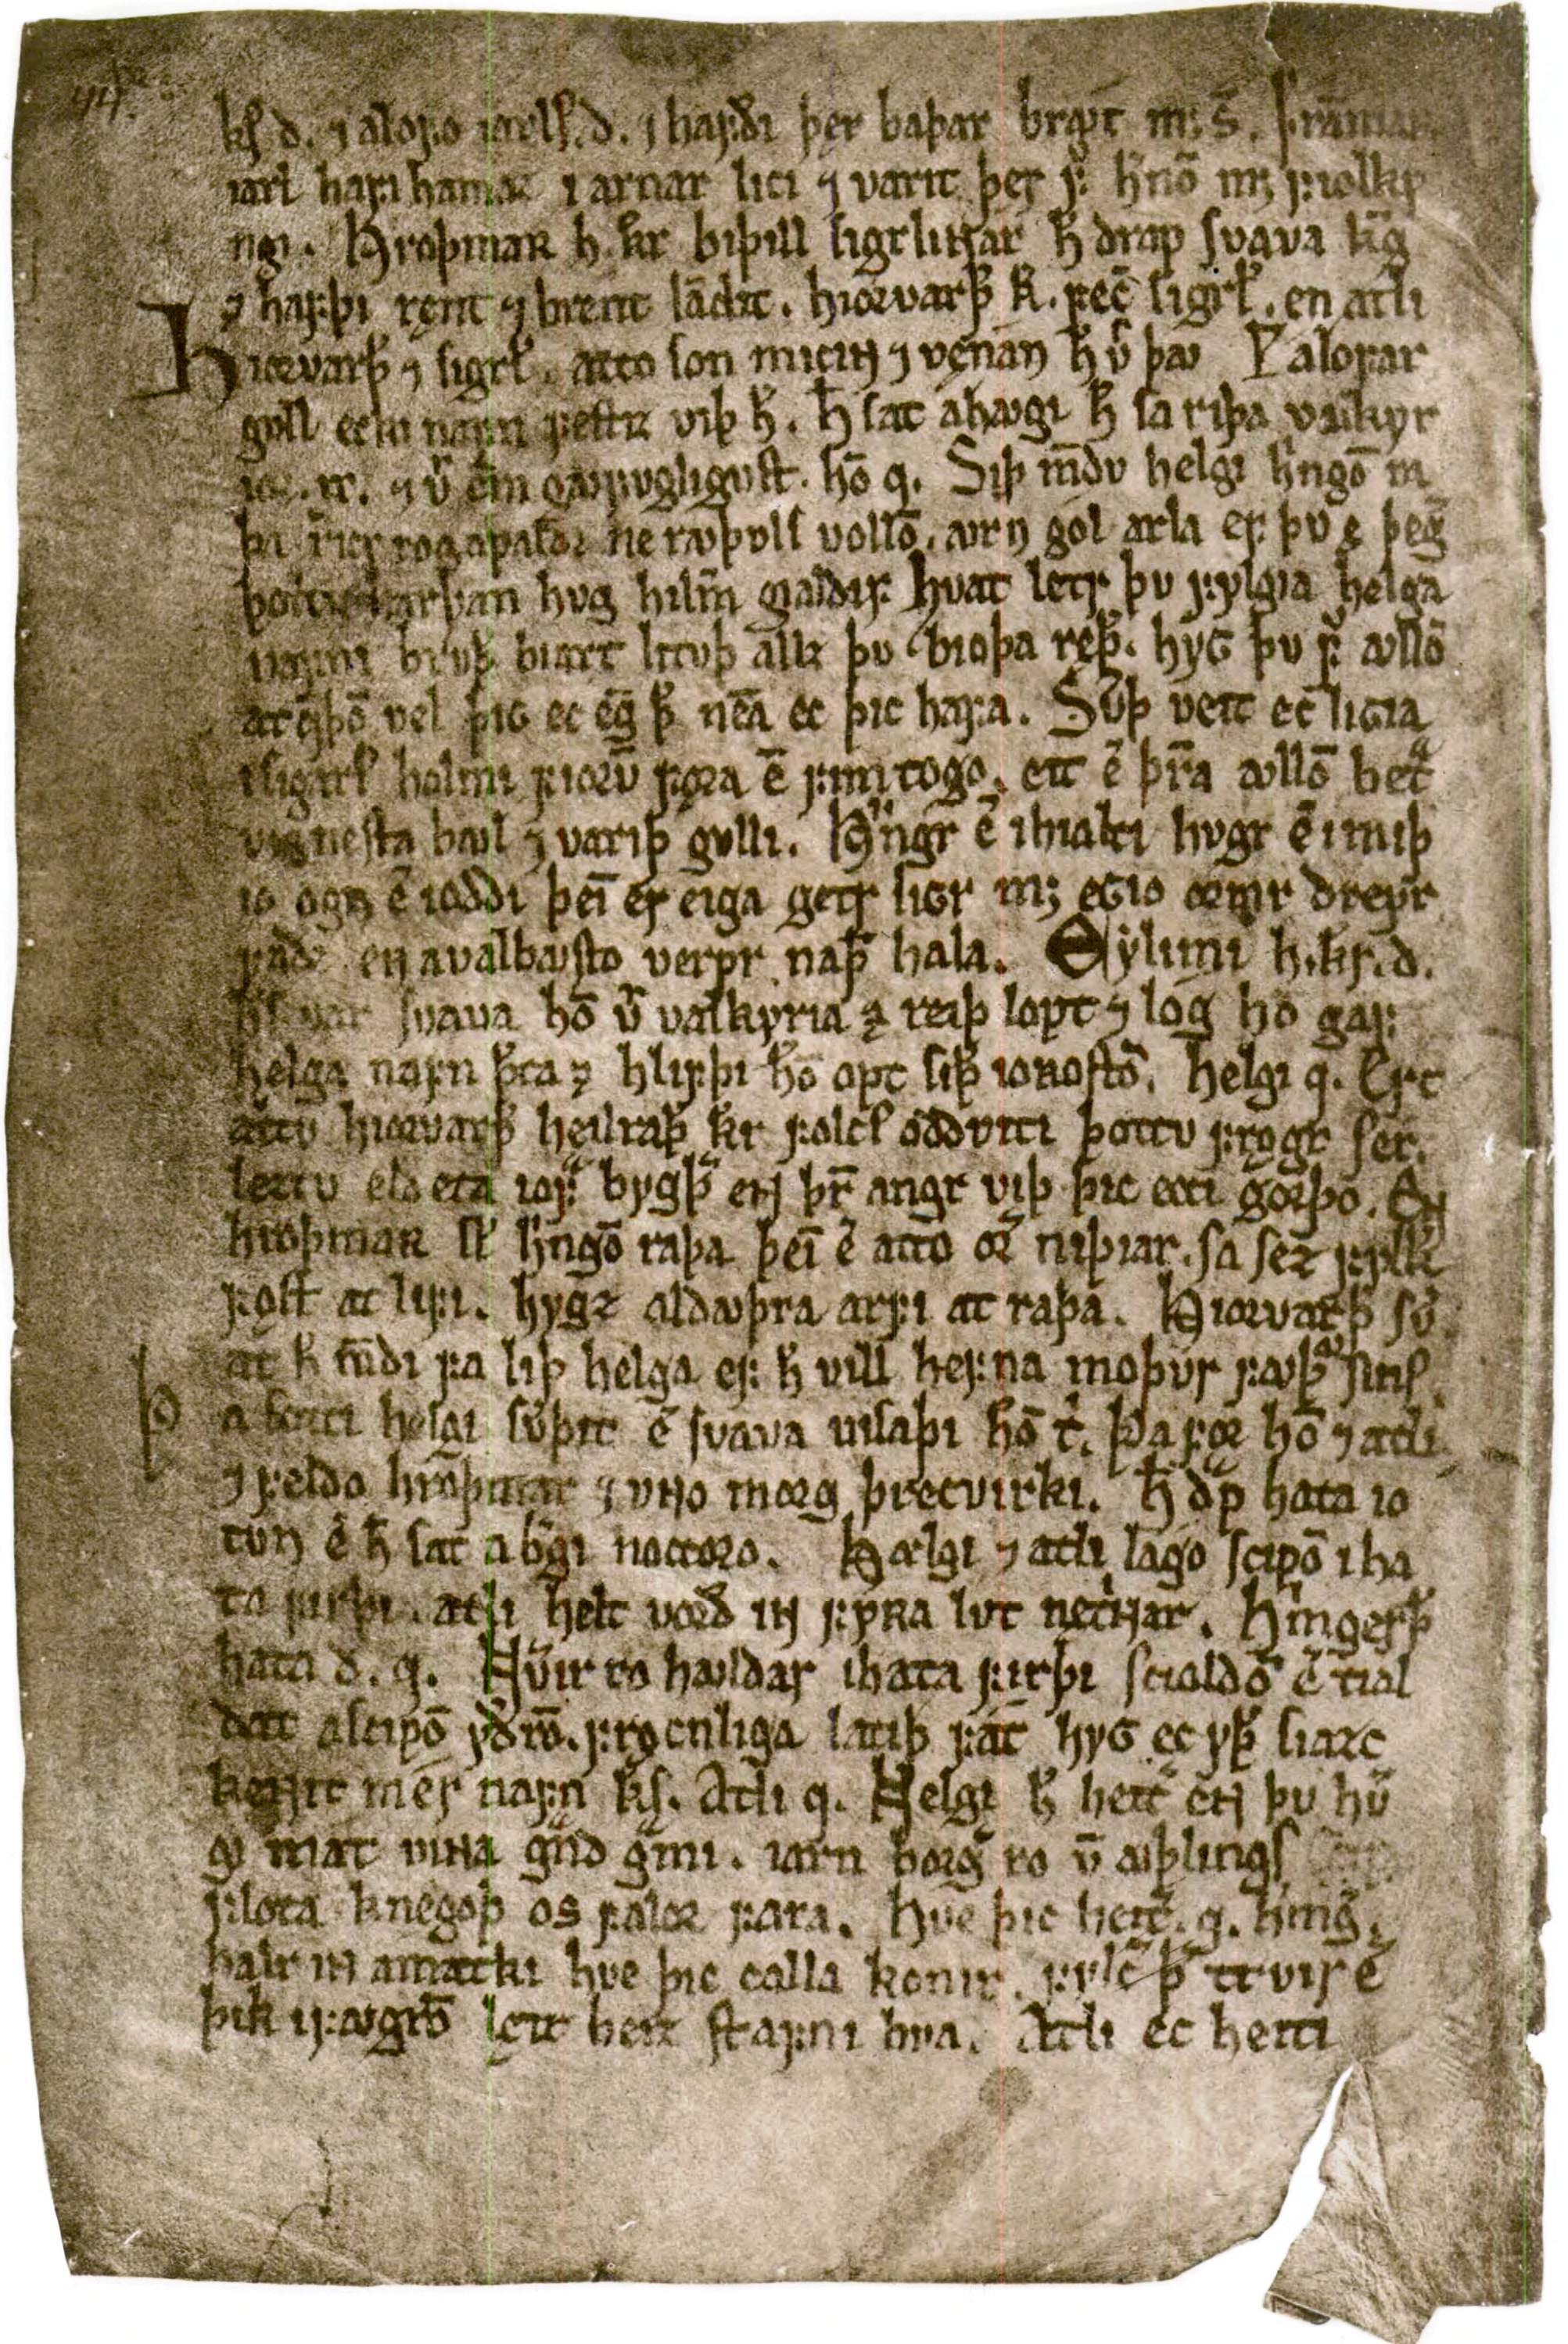 44.
kſ. d. ⁊ alofo iarlſ. d. ⁊ hafði þęr baþar brꜹt m; ſ̅. franmaʀ
iarl hafi hamaz i arnar liki ⁊ varit þęr f͛ h͛nō m; fiolky
ngi. Hroþmaʀ h. kr̅ biþill ſigrliɴar h̅ drap ſvava kg̅
⁊ hafþi ręnt ⁊ brent lādit. hiorvarþ͛ k̅. fec̅ ſigrl̅. en atli
Hiorvarþ͛ ⁊ ſigrl̅. atto ſon mikiɴ ⁊ vęnan h̅ v͛ þꜹ álofar
gvll ecki nafn feſtiz viþ h̅. h̅ ſat a hꜹgi h̅ ſa riþa valkyr
ior .ix. ⁊ v͛ ein gꜹfvgliguſt. hō q. Siþ mūdv helgi h͛ngō ra
þa ricr rog apaldr ne rꜹþvlſ vollō. ꜹrn gol arla ef þv ę þeg͛
þottu harþan hvg hilm͛ gialdir. hvat lętr þv fylgia helga
nafni brvþ biart litvþ allz þv bioþa ręþ͛. hyɢ þv f͛ ꜹllō
atqþō vel þiɢ ec eig͛ þ͛ nēa ec þic hafa. Sv͛þ veit ec liɢia
i ſigarſ holmi fiorū fęra ē fimtogo. eitt ē þr̅a ꜹllō betra
vignesta bꜹl ⁊ variþ gvlli. H͛ngr ē i hialti hvgr ē i miþ
io ogn ē i oddi þeī er eiga getr liɢr m; eɢio ormr dreyr
faðr en a valbꜹſto verpr naþ͛ hala. Eylimi h. kr̅. d.
h͛ſ var ſvava hō v͛ valkyria ⁊ reiþ lopt ⁊ lꜹg hō gaf
helga nafn þ͛ta ⁊ hlifþi hō opt ſiþ͛ i oʀoſtō. helgi q. Ert
attu hiorvarþ͛ heilraþ͛ kr̅ folcſ oddviti þottv fręgr ſer.
leztv eld eta iofra bygþ͛ en þr̅ angr viþ þic ecci gorþo. En
hroþmaʀ ſk͛ h͛ngō raþa þeī ē atto or͛ niþiar. ſa ſez fylk͛
fęſt at lifi. hygz aldꜹþra arfi at raþa. Hiorvarþ͛ ſv͛.
at h̅ mūdi fa liþ helga ef h̅ vill hefna moþvr fꜹþvr ſinſ
Þa ſotti helgi ſv͛þit ē ſvava viſaþi hō t͛. þa for hō ⁊ atli
⁊ feldo hroþmar ⁊ vɴo morg þrecvirki. h̅ dp hata io
tvn ē h̅ ſat a b͛gi noccoro. Helgi ⁊ atli lago ſcipō i ha
ta firþi. atli helt vorð iɴ fyʀa lvt nętiɴar. H͛mgerþ͛
hata d. q. Hv͛ir ro hꜹldar i hata firþi ſcioldō ē tial
dat a ſcipō yðrō. frꜹcnliga latiþ fat hyɢ ec yþ͛ ſiazc
keɴit mer nafn kſ. Atli q. Helgi h̅ heit͛ en þv hv͛
gi mat viɴa gnd g͛mi. iarn borg͛ ro v̅ ꜹþlingſ
flota knegoþ os falor fara. Hve þic heit͛. q. h͛mg͛.
halr iɴ amatki hve þic calla konir. fylc͛ þ͛ trvir ē
þik i fꜹgrō lętr beitz ſtafni bva. Atli ec heiti